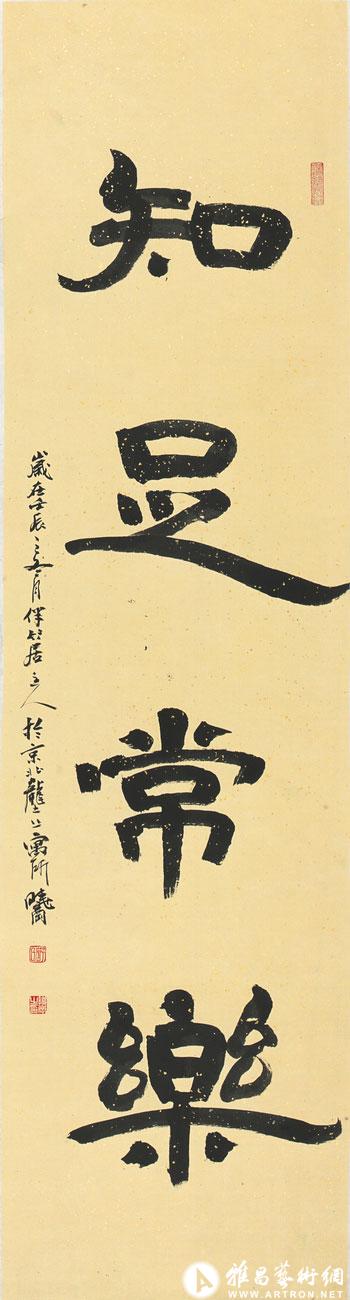 知足常樂
歲在壬辰之五月伴竹居主人於京北龍山寓所
雅昌藝術網
WWW.ARTRON.NET